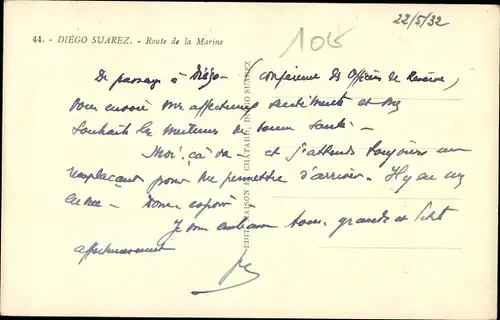 44. - DIÉGO SUAREZ. - Route de la Marine
22/5/32
105
De passage à Diégo - Conférence des Officiers de Réserve,
Vous envoie mes affectueux sentiments et mes
souhaits les meilleurs de bonne santé -
Moi, ça va - et j'attends toujours un
remplaçant pour me permettre d'arriver. Il y en a un
- Bonne espoir -
Je vous embrasse tous, grands et petits
affectueusement
ÉDIT. MAISON CHATARD, DIÉGO SUAREZ